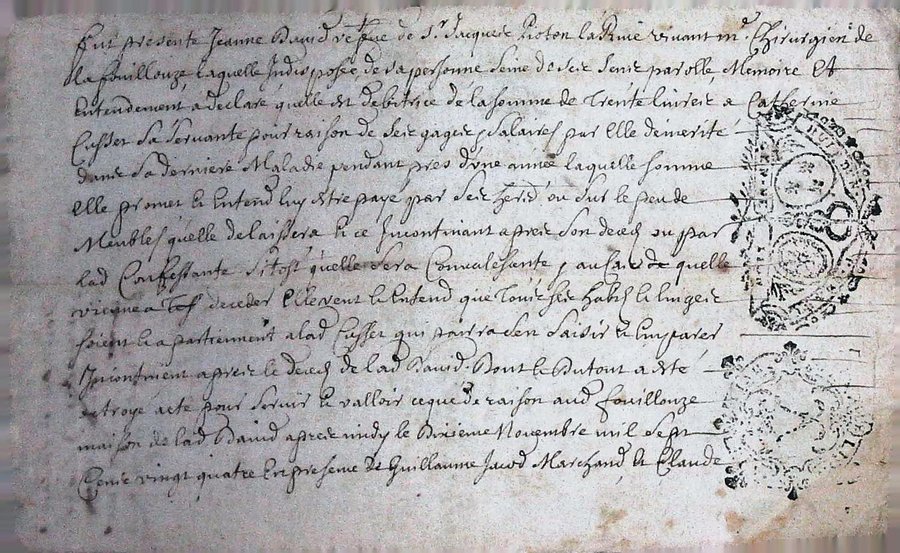 fut presente Jeanne David vefue de Sr Jacques Pioton laRive vivant me Chirurgien de
la fouillouze, laquelle Indisposée de sa personne seine de ses sens parolle Memoire Et
Entendement a declaré quelle est debitrice de la somme de Trente livres a Catherine
Cusset sa servante pour raison de ses gages, salaires par Elle demerité
dans sa derniere Maladie pendant pres d'yne année laquelle somme
elle promet & Entend luy estre payé par ses herd ou sur le peu de
Meubles quelle delaissera & ce Incontinant apres son deces ou par
lad Confessante sitost quelle sera Convalesante, au Cas de quelle
vienne a deceder Elle veut & Entend que Tous ses habis & linges
soient & apartiennent a lad Cusset qui pourra sen saisir & Emparer
Incontinent apres le deces de lad David. Dont & Dutout a esté
octroyé acte pour servir & valloir ce que de raison aud fouillouze
maison de lad David apres midy le Dixieme Novembre mil sept
Cens vingt quatre En presence de Guillaume Jacod Marchand & Claude